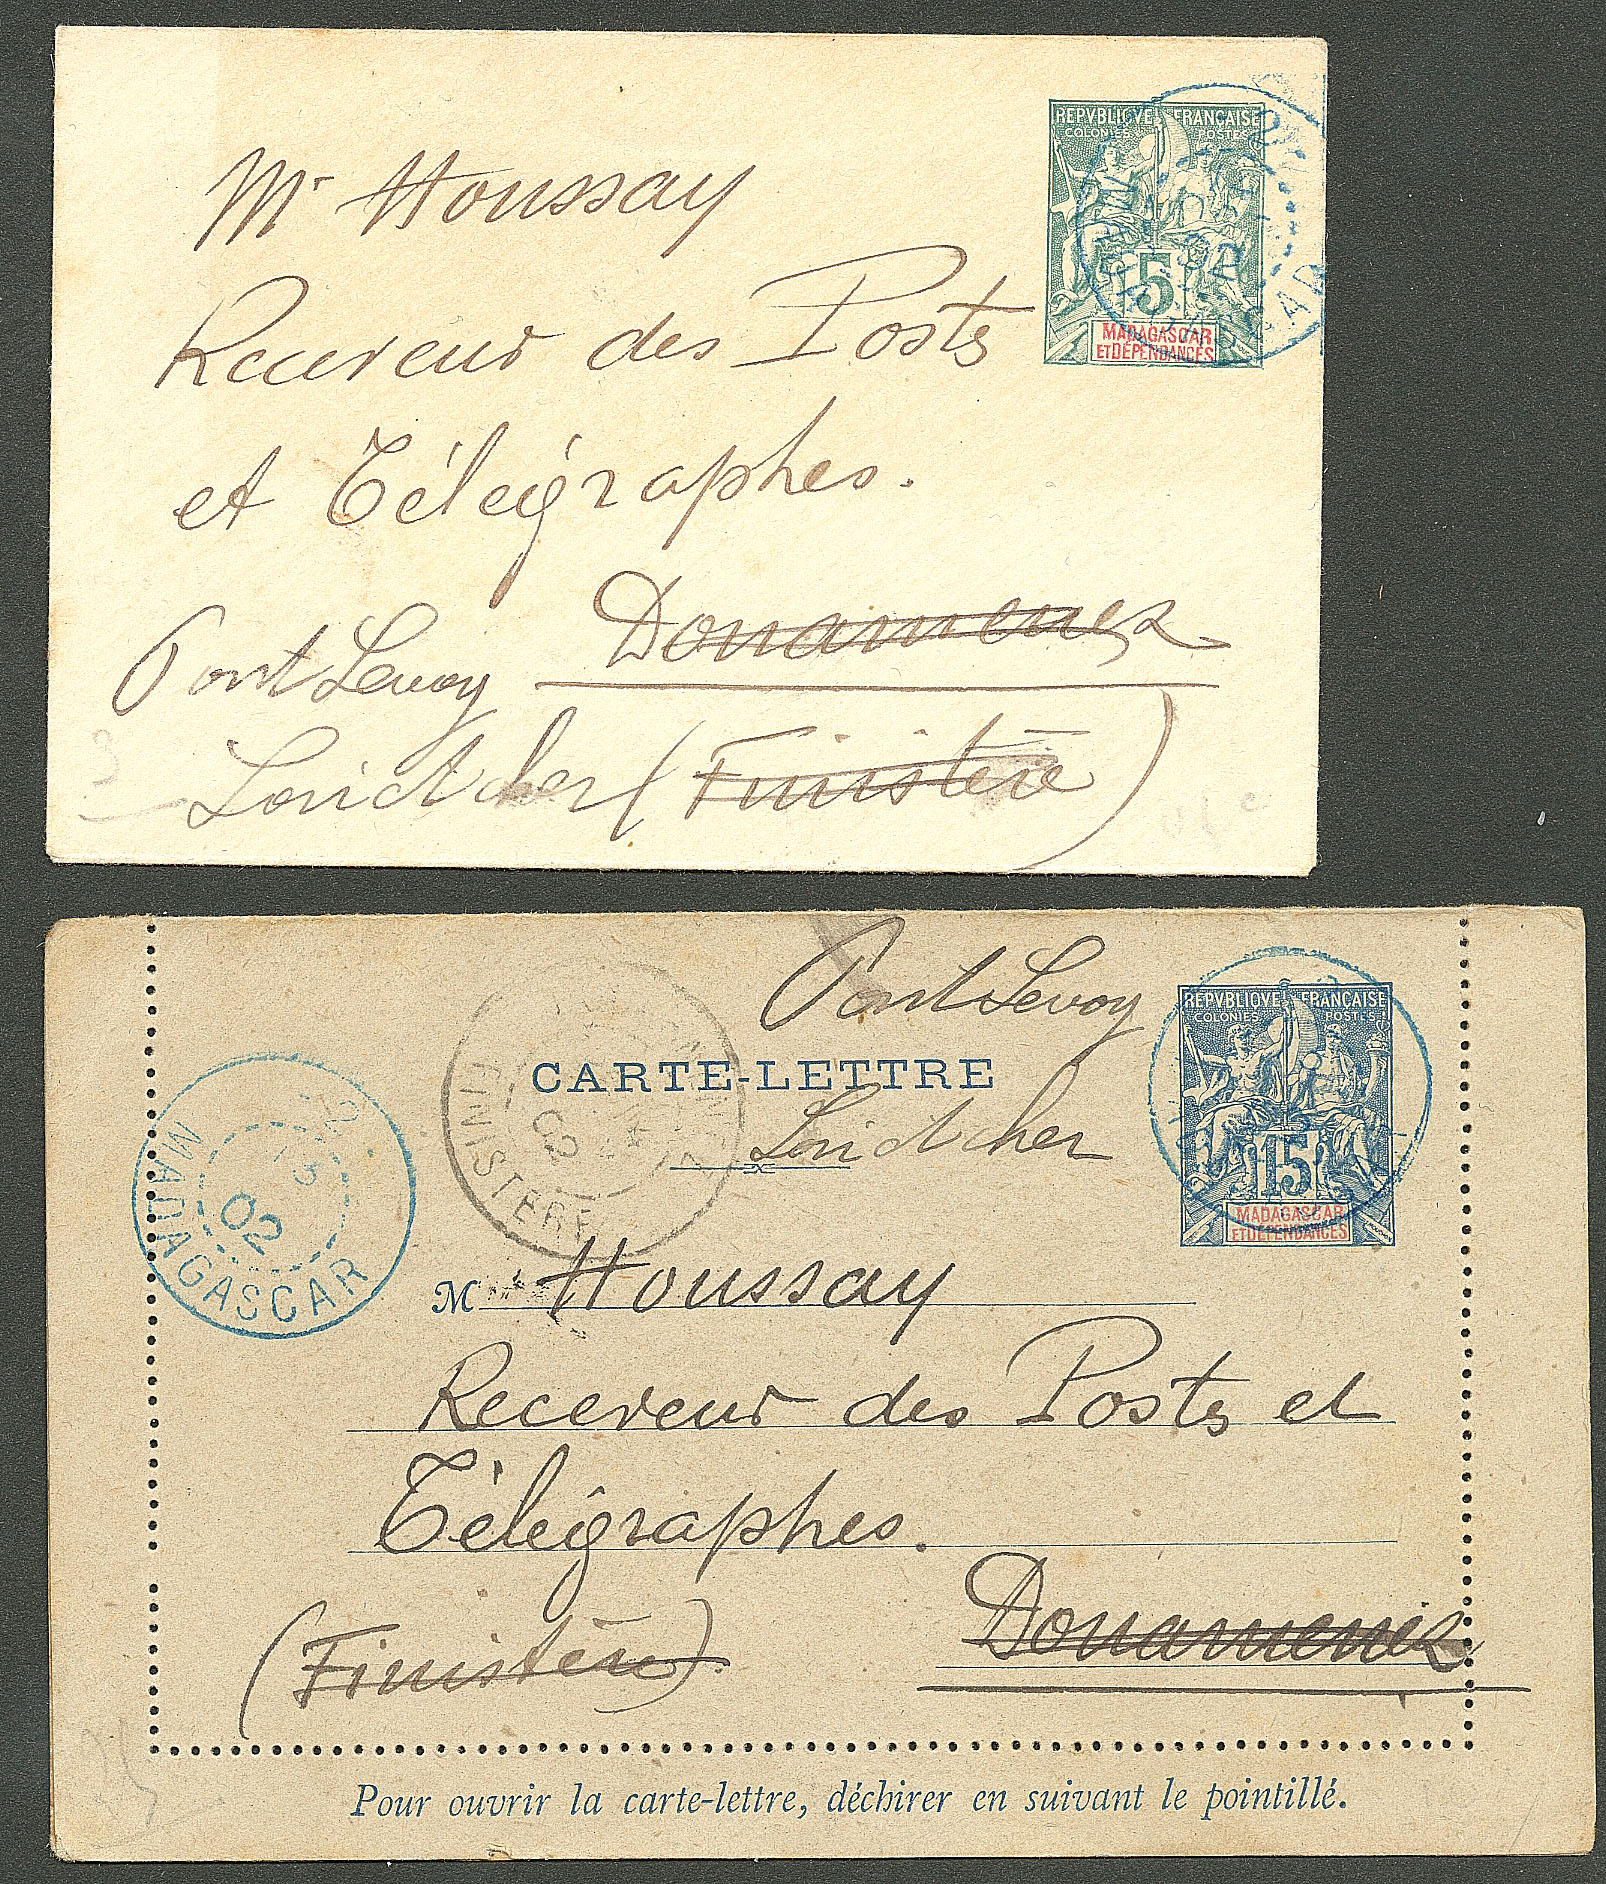 REPVBLIQVE FRANÇAISE
COLONIES POSTES
5
MADAGASCAR
ET DÉPENDANCES
MADAGASCAR
02
Mr Houssay
Receveur des Postes
et Télégraphes.
Douarnenez
Pont Levoy
Loir et cher (Finistère)
Pont Levoy
REPVBLIQVE FRANÇAISE
COLONIES POSTES
15
MADAGASCAR
ET DÉPENDANCES
CARTE-LETTRE
Loir et cher
13
02
MADAGASCAR
03
FINISTERE
M Houssay
Receveur des Postes et
Télégraphes.
Douarnenez
(Finistère)
Pour ouvrir la carte-lettre, déchirer en suivant le pointillé.